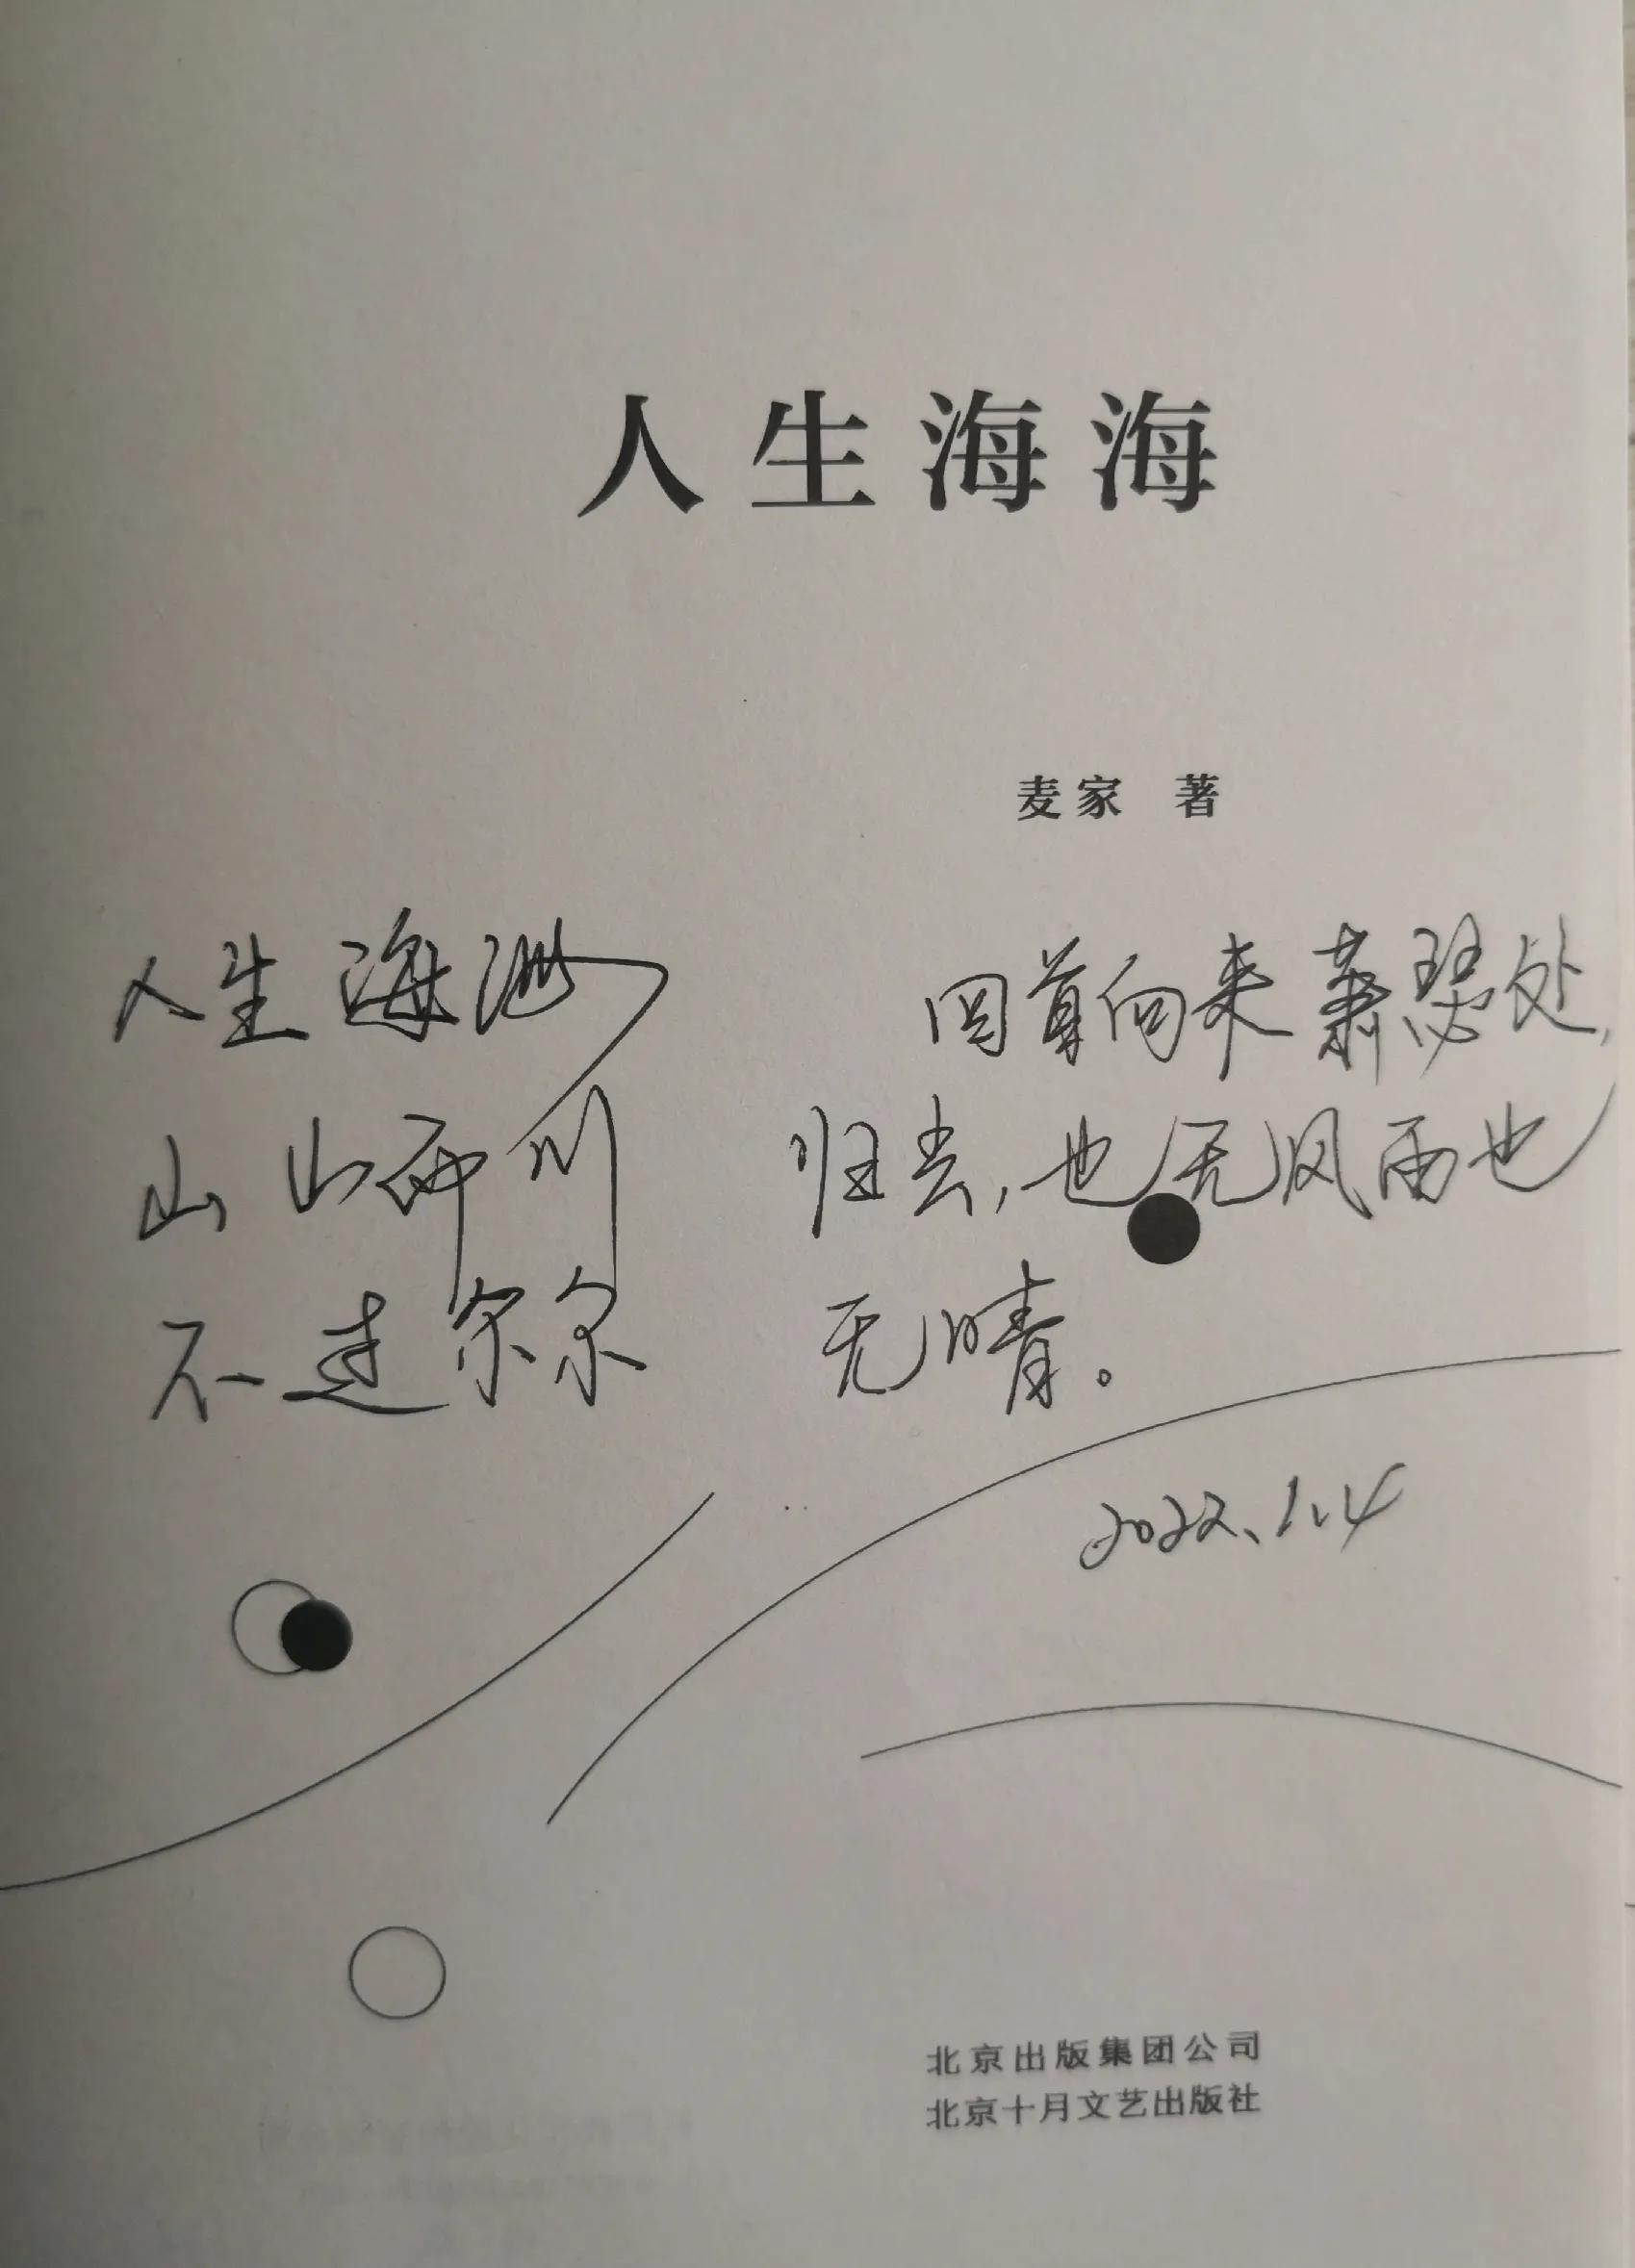 人生海海
麦家 著
人生海海
山山而川
不过尔尔
回首向来萧瑟处,
归去,也无风雨也
无晴。
2022、1、4
北京出版集团公司
北京十月文艺出版社